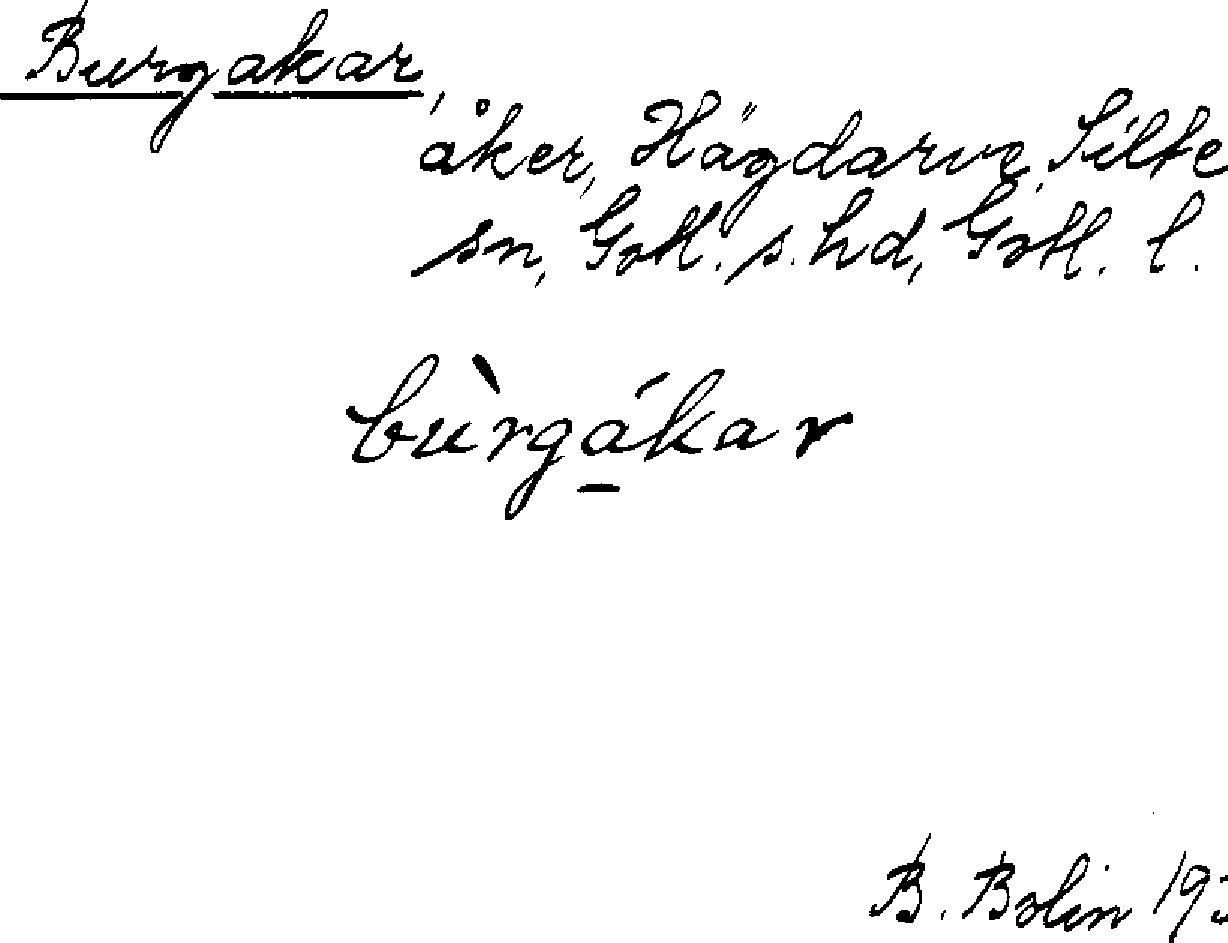 Burgakar,
åker, Hägdarve, Silte
sn, Gotl. s. hd, Gotl. l.
bùrgákar
B. Bolin 193